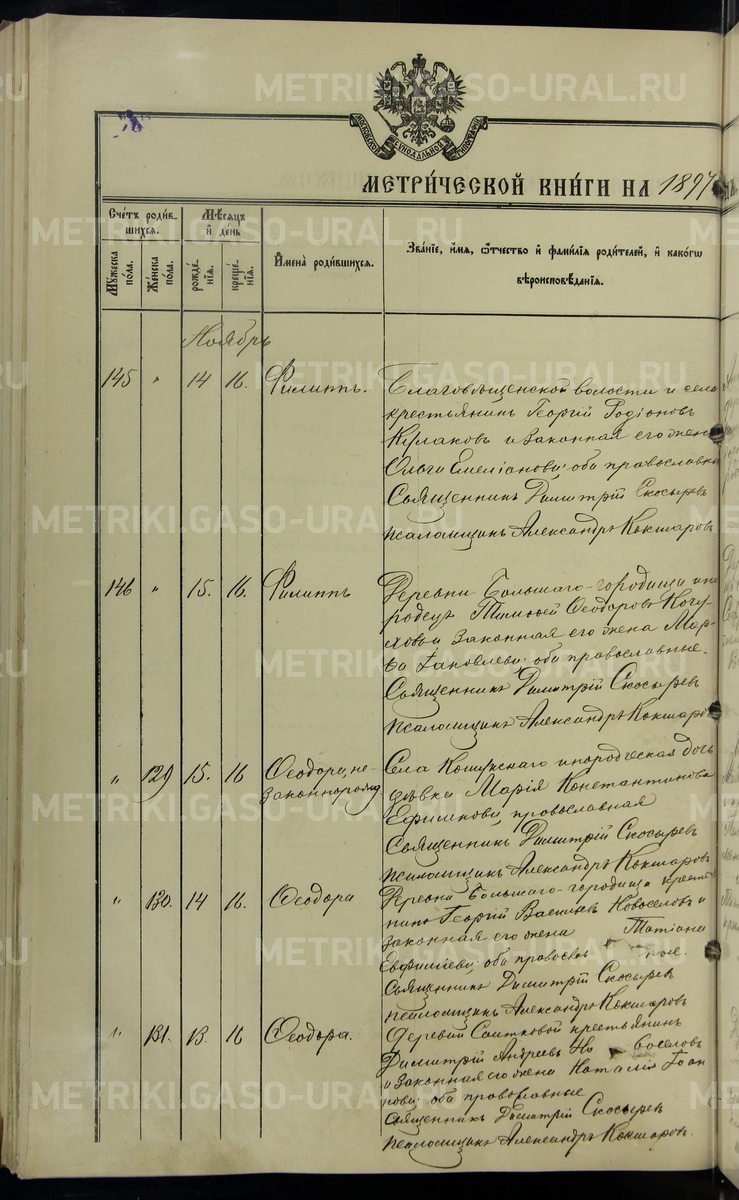 МОСКОВСКОЙ СѴНОДАЛЬНОЙ ТИПОГРАФІИ
МЕТРИ́ЧЕСКОЙ КНИ́ГИ НА 1897
Сче́тъ роди́в-
шихся.
Мѣ́сяцъ
и́ де́нь
Му́жеска по́ла.
Же́нска по́ла.
рожде́-
нія.
креще́-
нія.
И҆мена̀ роди́вшихся.
Зва́ніе, и҆́мя, ѻ҆́тчество и҆ фами́лія роди́телей, и҆ како́гѡ
вѣроисповѣ́данія.
Ноябрь
145 " 14 16. Филиппъ.
Благовѣщенской волости и села
крестьянинъ Георгій Родіоновъ
Кулаковъ и законная его жена
Ольга Емеліанова; оба православны
Священникъ Димитрій Скосыревъ
псаломщикъ Александръ Кокшаровъ
146 " 15. 16. Филиппъ
Деревни Большаго-городища ино
родецъ Тимоѳей Ѳеодоровъ
и законная его жена Мар-
ѳа Іаковлева; оба православные.
Священникъ Димитрій Скосыревъ
псаломщикъ Александръ Кокшаровъ
" 129 15. 16 Ѳеодора, не-
законнорожд
Села Кошукскаго инородческая дочь
дѣвка Марія Константинова
Ефимкова; православная
Священникъ Димитрій Скосыревъ
псаломщикъ Александръ Кокшаровъ
" 130. 14 16. Ѳеодора
Деревни Большаго-городища кресть
нинъ Георгій Васильевъ Новоселовъ и
законная его жена Татіана
Евфиміева; оба православ ные.
Священникъ Димитрій Скосыревъ
псаломщикъ Александръ Кокшаровъ
" 131. 13. 16 Ѳеодора.
Деревни Саитковой крестьянинъ
Димитрій Андреевъ Но воселовъ
и законная его жена Наталія Іоан
нова; оба православные
Священникъ Димитрій Скосыревъ
псаломщикъ Александръ Кокшаровъ.
METRIKI.GASO-URAL.RU